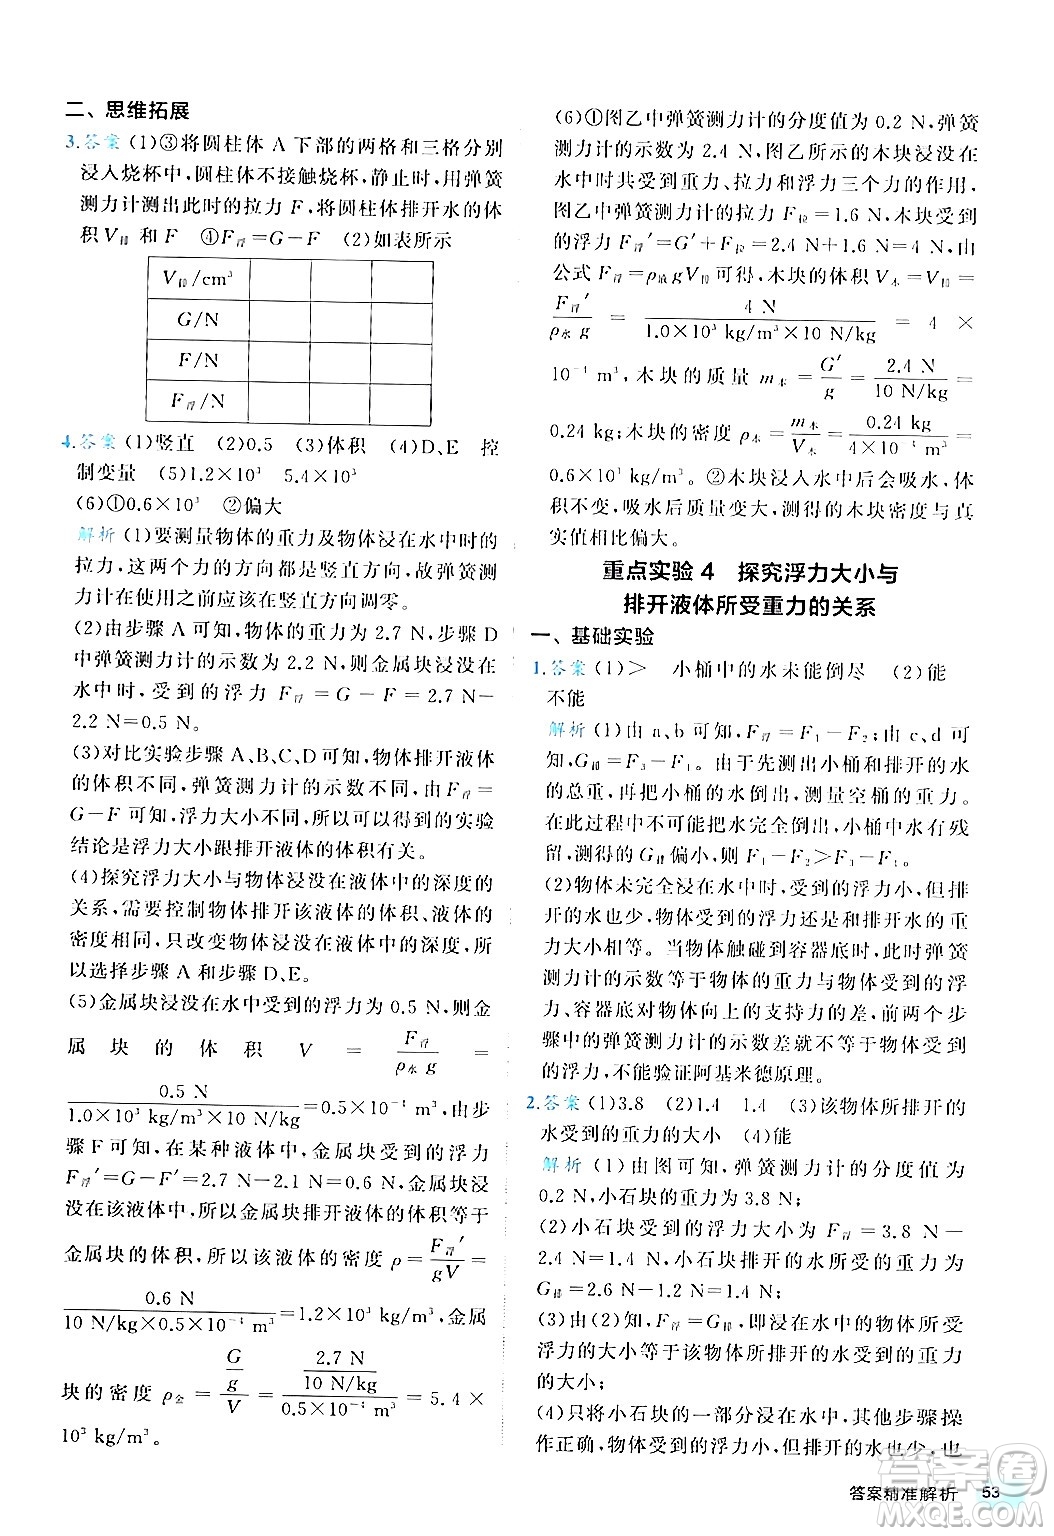 二、思维拓展
3.答案 (1)③将圆柱体 A 下部的两格和三格分别
浸入烧杯中,圆柱体不接触烧杯,静止时,用弹簧
测力计测出此时的拉力 F,将圆柱体排开水的体
积 V排 和 F ④F浮=G-F (2)如表所示
V排/cm³
G/N
F/N
F浮/N
4.答案 (1)竖直 (2)0.5 (3)体积 (4)D、E 控
制变量 (5)1.2×10³ 5.4×10³
(6)①0.6×10³ ②偏大
解析 (1)要测量物体的重力及物体浸在水中时的
拉力,这两个力的方向都是竖直方向,故弹簧测
力计在使用之前应该在竖直方向调零。
(2)由步骤 A 可知,物体的重力为 2.7 N,步骤 D
中弹簧测力计的示数为 2.2 N,所以金属块浸没在
水中时,受到的浮力 F浮=G-F=2.7 N-
2.2 N=0.5 N。
(3)对比实验步骤 A、B、C、D 可知,物体排开液体
的体积不同,弹簧测力计的示数不同,由 F浮=
G-F 可知,浮力大小不同,所以可以得到的实验
结论是浮力大小跟排开液体的体积有关。
(4)探究浮力大小与物体浸没在液体中的深度的
关系,需要控制物体排开该液体的体积、液体的
密度相同,只改变物体浸没在液体中的深度,所
以选择步骤 A 和步骤 D、E。
(5)金属块浸没在水中受到的浮力为 0.5 N,则金
属块的体积 V = F浮/ρ水 g =
0.5 N/1.0×10³ kg/m³×10 N/kg=0.5×10⁻⁴ m³,由步
骤 F 可知,在某种液体中,金属块受到的浮力
F浮′=G-F′=2.7 N-2.1 N=0.6 N,金属块浸
没在该液体中,所以金属块排开液体的体积等于
金属块的体积,所以该液体的密度 ρ=F浮′/gV=
0.6 N/10 N/kg×0.5×10⁻⁴ m³=1.2×10³ kg/m³,金属
块的密度 ρ金 = G/g/V = 2.7 N/10 N/kg/0.5×10⁻⁴ m³ = 5.4×
10³ kg/m³。
(6)①图乙中弹簧测力计的分度值为 0.2 N,弹簧
测力计的示数为 2.4 N,图乙所示的木块浸没在
水中时共受到重力、拉力和浮力三个力的作用,
图乙中弹簧测力计的拉力 F拉=1.6 N,木块受到
的浮力 F浮′=G′+F拉=2.4 N+1.6 N=4 N,由
公式 F浮=ρ液gV排可得,木块的体积 V木=V排=
F浮′/ρ水 g = 4 N/1.0×10³ kg/m³×10 N/kg = 4 ×
10⁻⁴ m³,木块的质量 m木=G′/g=2.4 N/10 N/kg=
0.24 kg;木块的密度 ρ木=m木/V木=0.24 kg/4×10⁻⁴ m³=
0.6×10³ kg/m³。②木块浸入水中后会吸水,体
积不变,吸水后质量变大,测得的木块密度与真
实值相比偏大。
重点实验 4 探究浮力大小与
排开液体所受重力的关系
一、基础实验
1.答案 (1)> 小桶中的水未能倒尽 (2)能
不能
解析 (1)由 a、b 可知,F浮=F₁-F₂;由 c、d 可
知,G排=F₃-F₄。由于先测出小桶和排开的水
的总重,再把小桶的水倒出,测量空桶的重力。
在此过程中不可能把水完全倒出,小桶中水有残
留,测得的 G排偏小,则 F₁-F₂>F₃-F₄。
(2)物体未完全浸没在水中时,受到的浮力小,但
排开的水也少,物体受到的浮力还是和排开水的重
力大小相等。当物体触碰到容器底时,此时弹簧
测力计的示数等于物体的重力与物体受到的浮
力、容器底对物体向上的支持力的差,前两个步
骤中的弹簧测力计的示数差就不等于物体受到
的浮力,不能验证阿基米德原理。
2.答案 (1)3.8 (2)1.4 1.4 (3)该物体所排开的
水受到的重力的大小 (4)能
解析 (1)由图可知,弹簧测力计的分度值为
0.2 N,小石块的重力为 3.8 N;
(2)小石块受到的浮力大小为 F浮=3.8 N-
2.4 N=1.4 N,小石块排开的水所受的重力为
G排=2.6 N-1.2 N=1.4 N;
(3)由(2)可知,F浮=G排,即浸在水中的物体所受
浮力的大小等于该物体所排开的水受到的重力
的大小;
(4)只将小石块的一部分浸在水中,其他步骤操
作正确,物体受到的浮力小,但排开的水也少,仍
答案精准解析 53
答案圈
MXQE.COM